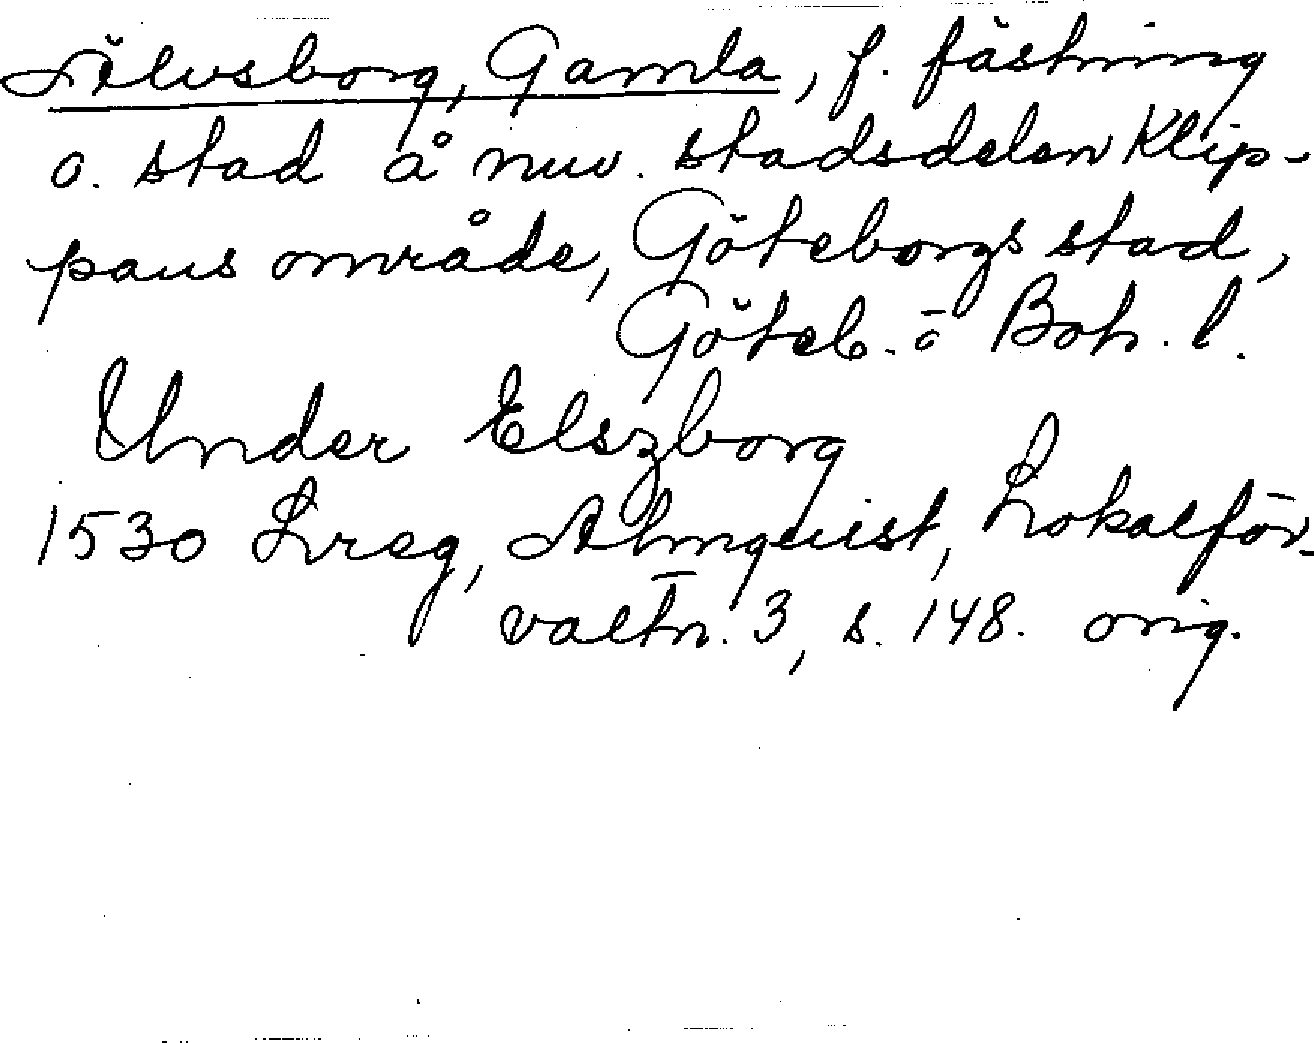 Älvsborg, Gamla, f. fästning
o. stad å nuv. stadsdelen Klip-
pans område, Göteborgs stad,
Göteb. o Boh. l.
Under Elszborg
1530 Lreg, Almquist, Lokalför-
valtn. 3, s. 148. orig.